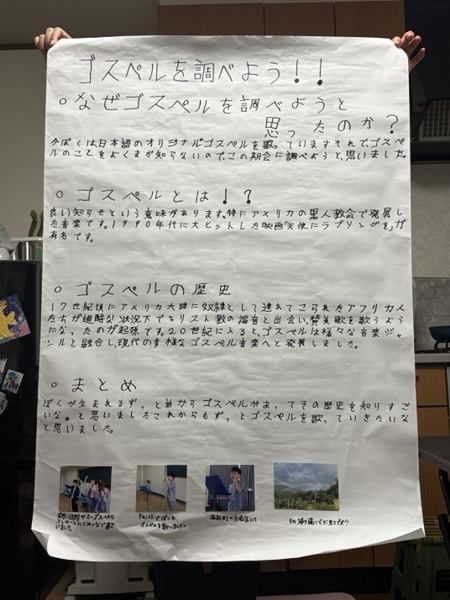 ゴスペルを調べよう!!
○なぜゴスペルを調べようと
思ったのか?
今ぼくは日本語のオリジナルゴスペルを歌っていますそれで、ゴスペ
ルのことをよくまだ知らないのでこの期会に調べようと思いました。
○ゴスペルとは!?
良い知らせという意味があります。特にアメリカの黒人教会で発展し
た音楽です。1990年代に大ヒットした映画天使にラブソングを、が
有名です。
○ゴスペルの歴史
17世紀頃にアメリカ大陸に奴隷として連れてこられたアフリカ人
たちが過酷な状況下でキリスト教の福音と出会い賛美歌を歌うよう
になったのが起源です。20世紀に入ると、ゴスペルは様々な音楽ジャ
ンルと融合し、現代の多様なゴスペル音楽へと発展しました。
○まとめ
ぼくが生まれるずっと前からゴスペルがあってその歴史を知りすご
いな。と思いましたこれからもずっとゴスペルを歌っていきたいな
と思いました。
ゴスペル